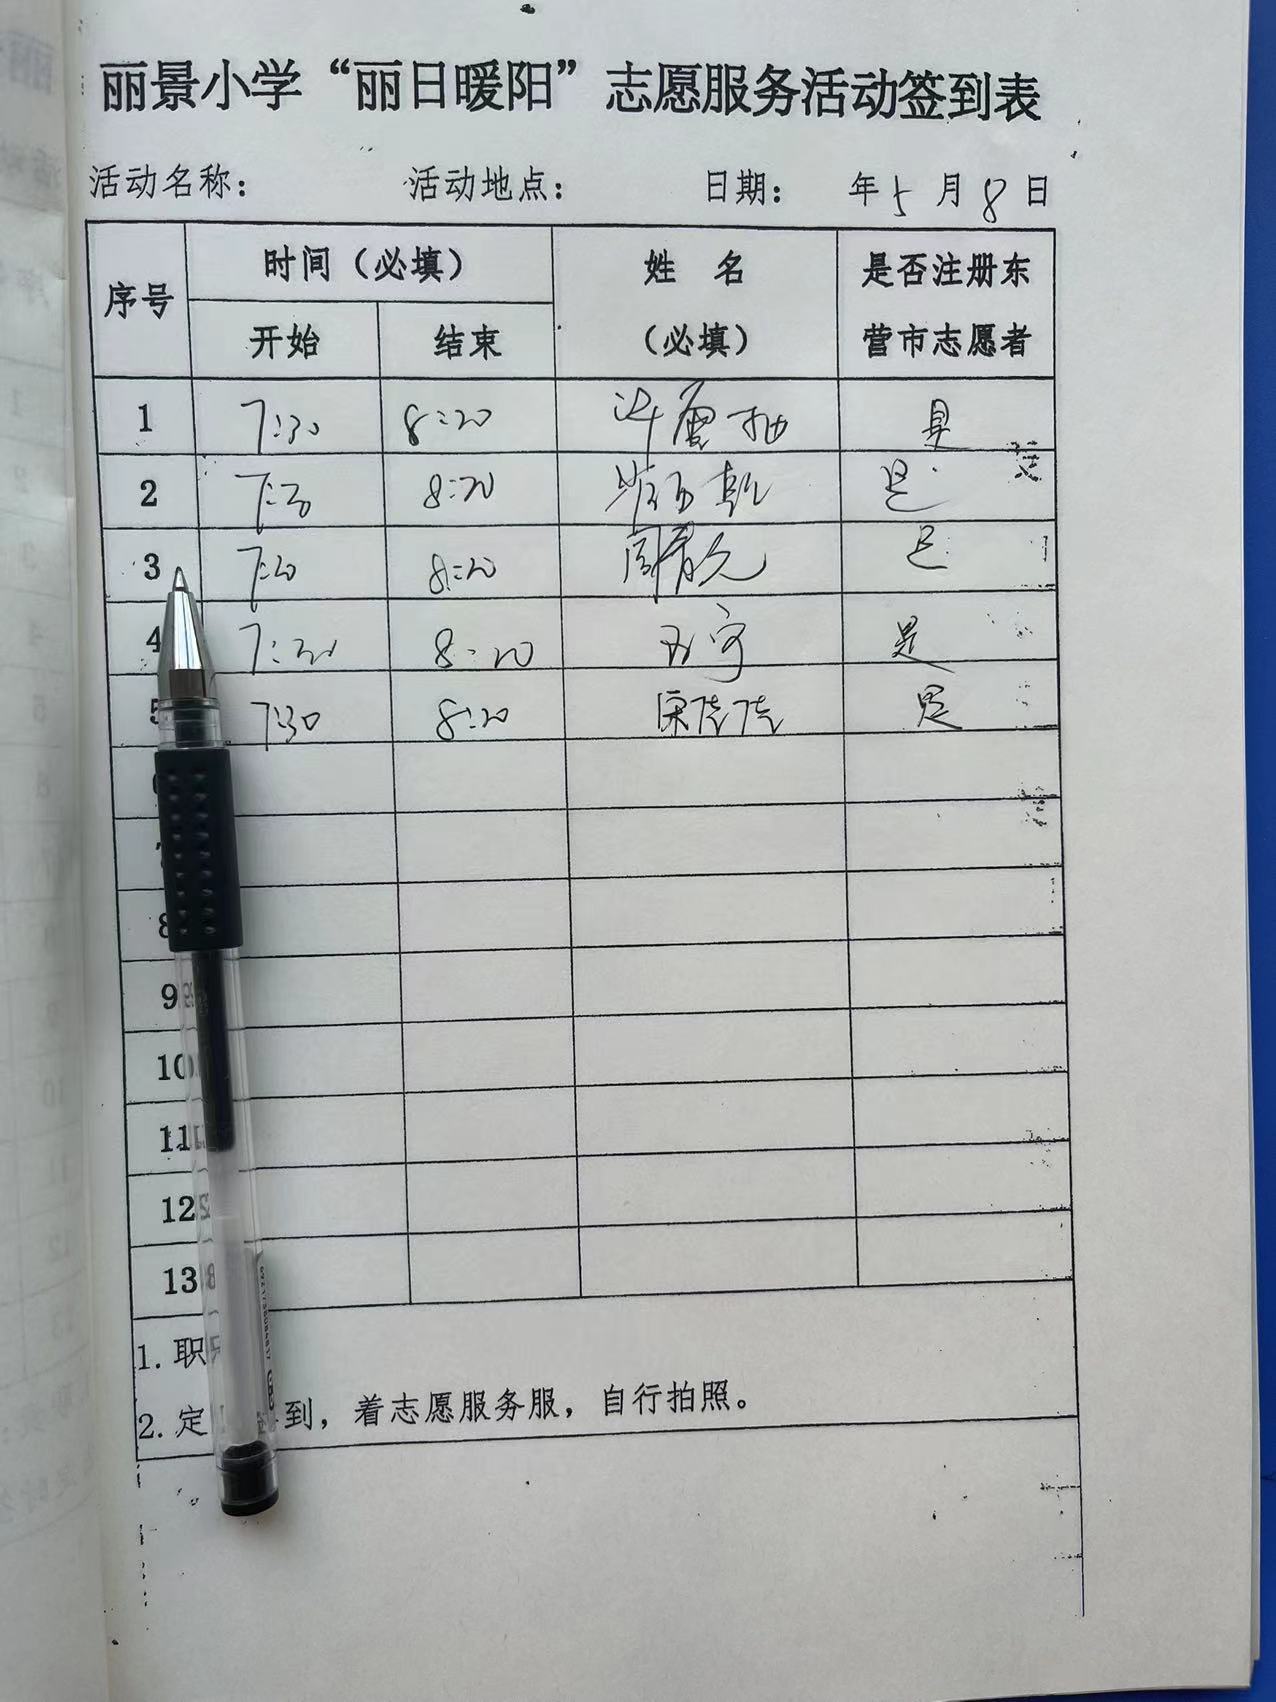 丽景小学“丽日暖阳”志愿服务活动签到表
活动名称： 活动地点： 日期： 年5月8日
序号 时间（必填） 姓 名（必填） 是否注册东营市志愿者
开始 结束
1 7:30 8:20 是
2 7:30 8:20 是
3 7:20 8:20 是
4 7:30 8:20 是
5 7:30 8:20 宋佳佳 是
8
9
10
11
12
13
1. 职
2. 定 到，着志愿服务服，自行拍照。